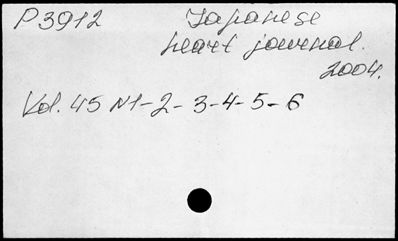 P3912 Japanese
heart journal.
2004.
Vol. 45 N1-2-3-4-5-6